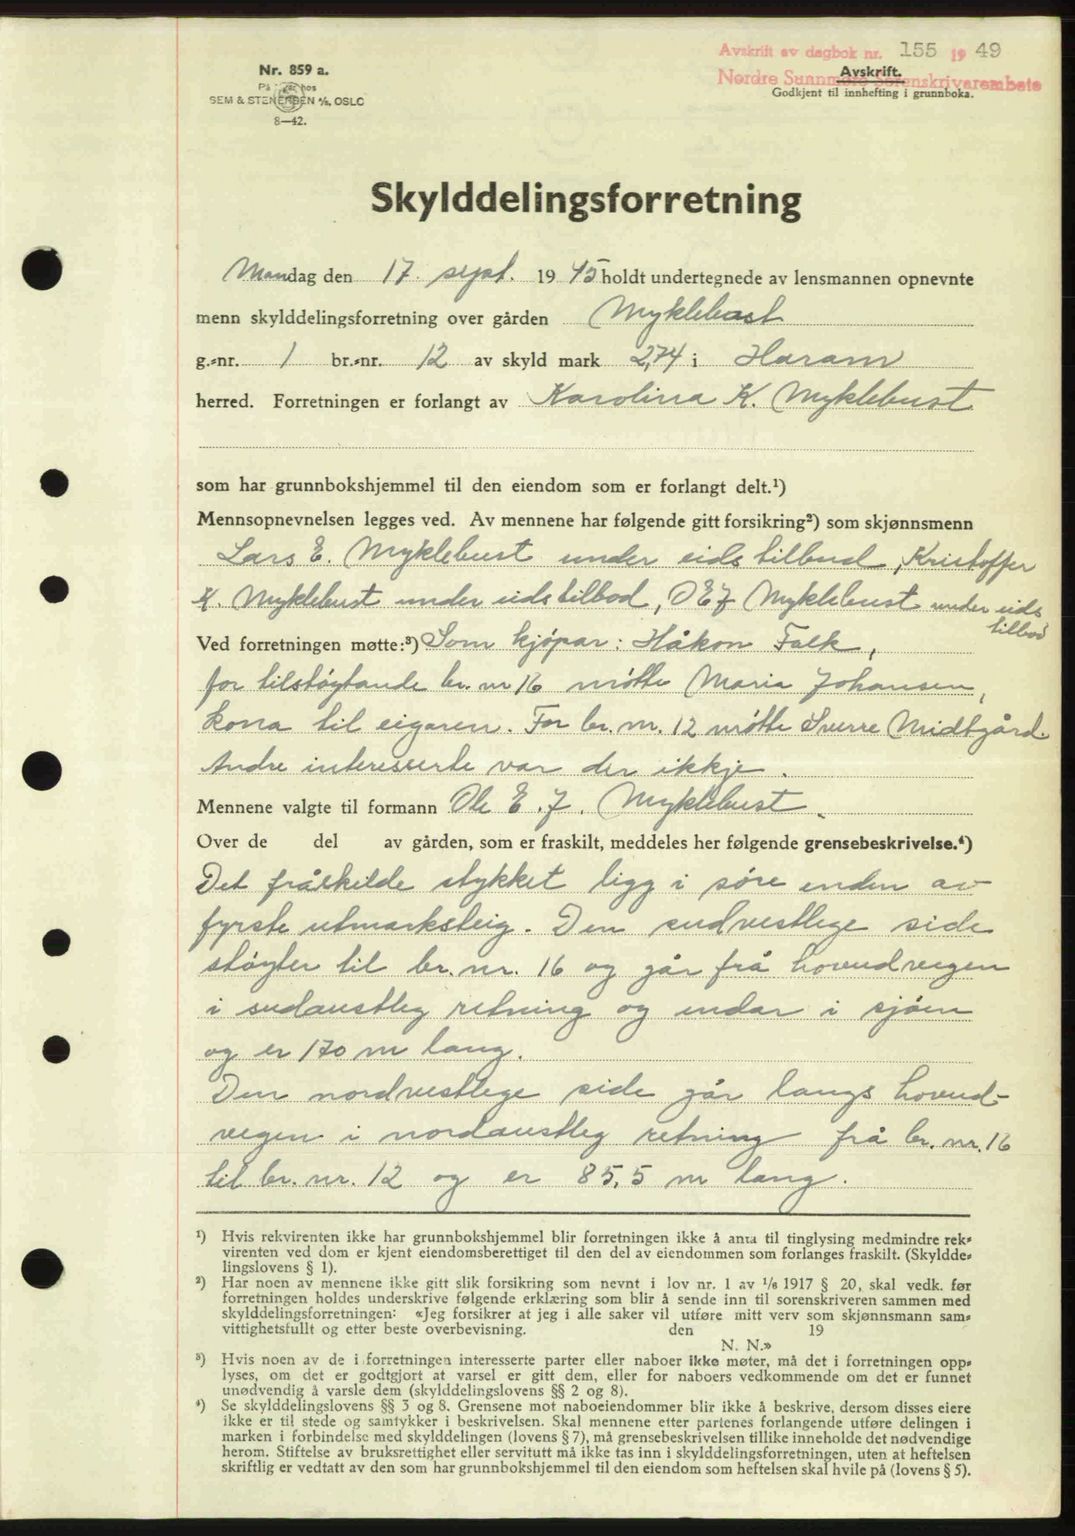 Avskrift av dagbok nr. 155 19 49
Nordre Sunnmøre Sorenskrivarembete
Nr. 859 a.
Avskrift.
Godkjent til innhefting i grunnboka.
SEM & STENERSEN A/S, OSLO
8—42.
Skylddelingsforretning
Mandag den 17. sept. 19 45 holdt undertegnede av lensmannen opnevnte
menn skylddelingsforretning over gården Myklebust
g.-nr. 1 br.-nr. 12 av skyld mark 2,74 i Haram
herred. Forretningen er forlangt av Karolina K. Myklebust
som har grunnbokshjemmel til den eiendom som er forlangt delt.¹)
Mennsopnevnelsen legges ved. Av mennene har følgende gitt forsikring²) som skjønnsmenn
Lars E. Myklebust under eids tilbud, Kristoffer
K. Myklebust under eids tilbod, O E J Myklebust under eids
tilbod
Ved forretningen møtte:³) Som kjøpar: Håkon Falk,
for tilstøytande br. nr 16 møtte Maria Johansen,
kona til eigaren. For br. nr. 12 møtte Sverre Midtgård.
Andre interesserte var der ikkje.
Mennene valgte til formann Ole E. J. Myklebust.
Over de del av gården, som er fraskilt, meddeles her følgende grensebeskrivelse.⁴)
Det fråskilde stykket ligg i søre enden av
fyrste utmarksteig. Den sudvestlege side
støyter til br. nr. 16 og går frå hovudvegen
i sudaustleg retning og endar i sjøen
og er 170 m lang.
Den nordvestlege side går langs hovud-
vegen i nordaustleg retning frå br. nr. 16
til br. nr. 12 og er 85,5 m lang.
¹) Hvis rekvirenten ikke har grunnbokshjemmel blir forretningen ikke å anta til tinglysing medmindre rek-
virenten ved dom er kjent eiendomsberettiget til den del av eiendommen som forlanges fraskilt. (Skyldde-
lingslovens § 1).
²) Har noen av mennene ikke gitt slik forsikring som nevnt i lov nr. 1 av 1/6 1917 § 20, skal vedk. før
forretningen holdes underskrive følgende erklæring som blir å sende inn til sorenskriveren sammen med
skylddelingsforretningen: «Jeg forsikrer at jeg i alle saker vil utføre mitt verv som skjønnsmann sam-
vittighetsfullt og etter beste overbevisning. den 19
N. N.»
³) Hvis noen av de i forretningen interesserte parter eller naboer ikke møter, må det i forretningen opp-
lyses, om det er godtgjort at varsel er gitt dem, eller for naboers vedkommende om det er funnet
unødvendig å varsle dem (skylddelingslovens §§ 2 og 8).
⁴) Se skylddelingslovens §§ 3 og 8. Grensene mot naboeiendommer blir ikke å beskrive, dersom disses eiere
ikke er til stede og samtykker i beskrivelsen. Skal mennene etter partenes forlangende utføre delingen i
marken i forbindelse med skylddelingen (lovens § 7), må grensebeskrivelsen tillike inneholde det nødvendige
herom. Stiftelse av bruksrettighet eller servitutt må ikke tas inn i skylddelingsforretningen, uten at heftelsen
skriftlig er vedtatt av den som har grunnbokshjemmel til den eiendom som heftelsen skal hvile på (lovens § 5).